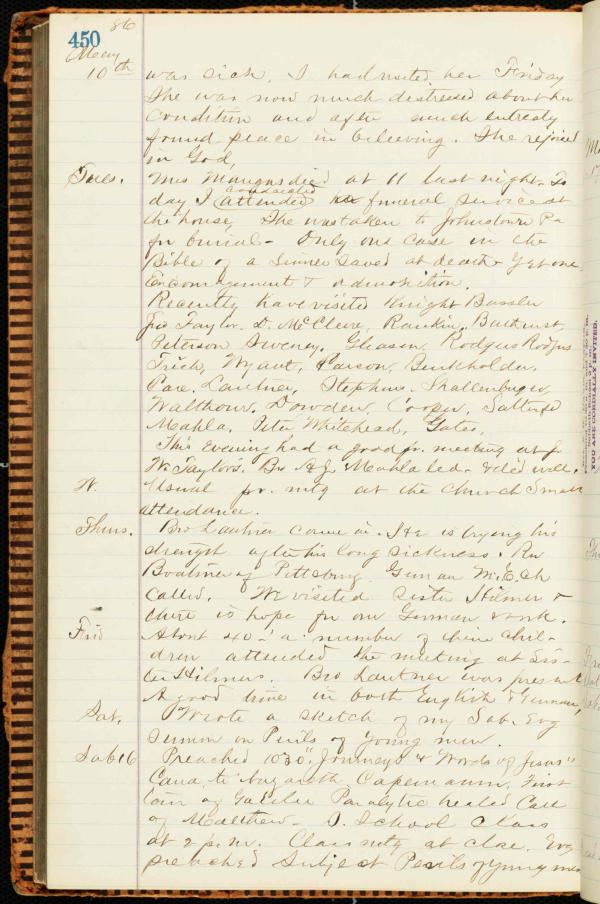 450 86
May
10th was sick. I had visited her Friday
She was now much distressed about her
condition and after much entreaty
found peace in believing. She rejoiced
in God,
Tues. Mrs Mangus died at 11 last night. To
day I attended & assisted funeral service at
the house, She was taken to Johnstown Pa
for burial - Only one case in the
Bible of a sinner saved at death - yet one
Encouragement & admonition.
Recently have visited Knight Bassler
Taylor. D. McClure, Rankin,
Peterson Sweney, Gleason, Rodgers Rodgers
Wyant, Parson, Burkholder,
Lautner, Stephens. Shallenberger,
Walthour, Dowden, Cooper,
Mahla, Peter Whitehead, Gates,
This Evening had a good pr. meeting at
W. Taylors. Bro A.J. Mahla led - & did well.
W. Usual pr. mtg at the church Small
attendance.
Thurs. Bro Lautner came in. He is trying his
strength after his long sickness. Rev
of Pittsburg German M.E. Ch
called. We visited Sister Hilmer &
there is hope for our German work.
Frid About 40 - a number of them chil-
dren attended the meeting at Sis-
ter Hilmers. Bro Lautner was present
A good time in both English & German,
Sat. Wrote a sketch of my Sab. Evg
sermon on Perils of young men.
Sab 16 Preached 10 30 "Journeys & Words of Jesus"
Cana to Nazareth Capernaum, First
tour of Galilee Paralytic healed Call
of Matthew - S. School Class
at 2 p.m. Class mtg at close. Evg
preached Subject Perils of young men
YOU ARE CORDIALLY INVITED.